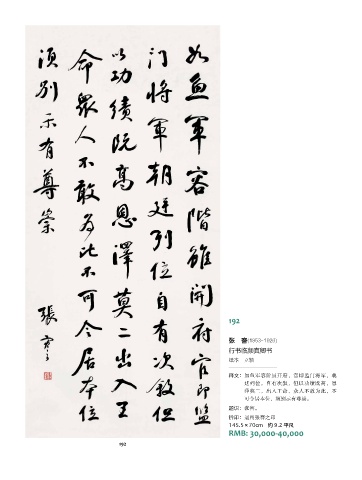 如魚軍容階雖開府官即監
門將軍朝廷列位自有次敘但
以功績既高恩澤莫二出入王
命眾人不敢為比不可令居本位
須別示有尊崇
張謇
192
192
张 謇(1853-1926)
行书临颜真卿书
纸本 立轴
释文:如鱼军容阶虽开府,官即监门将军,朝
廷列位,自有次叙,但以功绩既高,恩
泽莫二,出入王命,众人不敢为比,不
可令居本位,须别示有尊崇。
款识:張謇。
钤印:张謇之印
145.5×70cm 约 9.2 平尺
RMB: 30,000-40,000